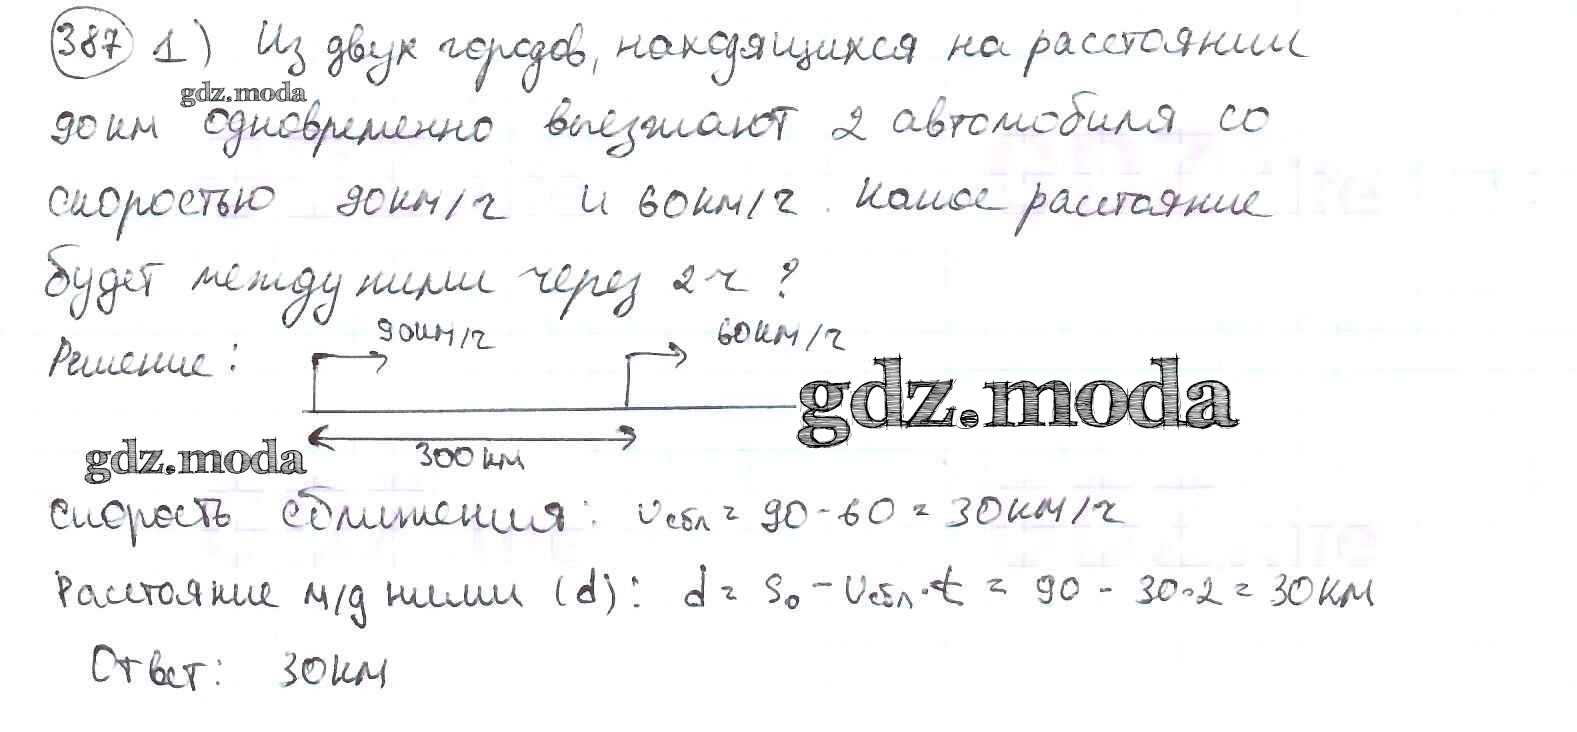 387 1) Из двух городов, находящихся на расстоянии
gdz.moda
90 км одновременно выезжают 2 автомобиля со
скоростью 90 км/ч и 60 км/ч. Какое расстояние
будет между ними через 2 ч?
90 км/ч 60 км/ч
Решение:
gdz.moda
300 км
gdz.moda
Скорость сближения: Uсбл = 90 - 60 = 30 км/ч
Расстояние м/д ними (d): d = S₀ - Uсбл·t = 90 - 30·2 = 30 км
Ответ: 30 км